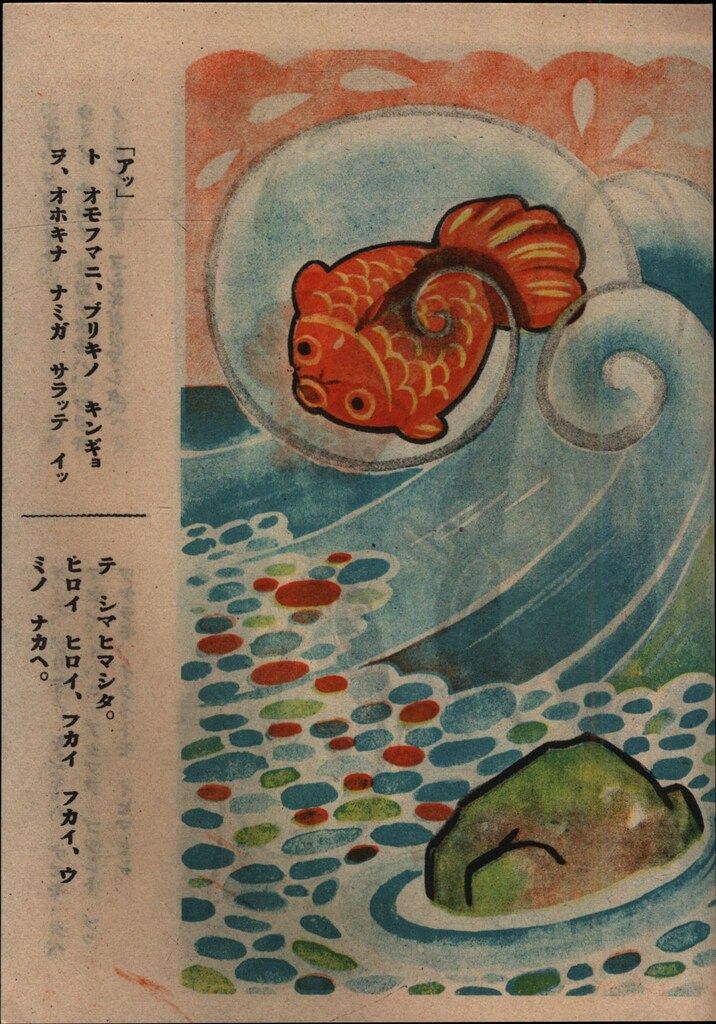 「アッ」
ト オモフマニ、ブリキノ キンギョ
ヲ、オホキナ ナミガ サラッテ イッ
テ シマヒマシタ。
ヒロイ ヒロイ、フカイ フカイ、ウ
ミノ ナカヘ。